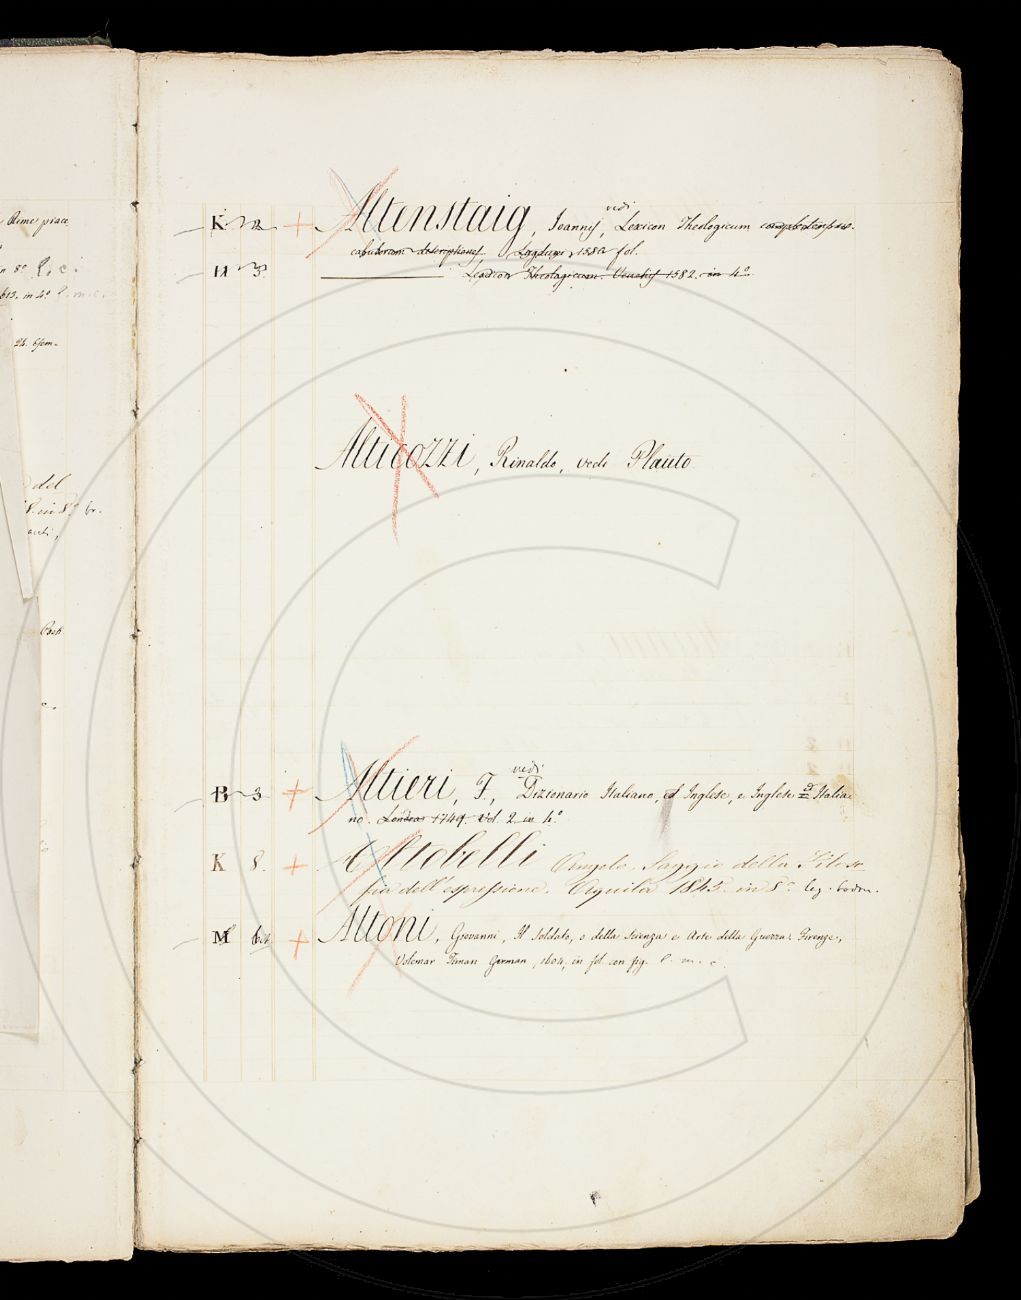 Rime piace
in 8º l. c. i
613. in 4º l. m. c.
24. 6/em.
del
in 8º br.
Post.
K 2 + Altenstaig, Joannis, vedi Lexicon Theologicum complectens vo-
cabulorum descriptiones. Lugduni, 1580 fol.
H 3 Lexicon Theologicum. Venetiis 1582. in 4º.
Alticozzi, Rinaldo, vedi Plauto
B 3 + Altieri, F., vedi Dizionario Italiano, ed Inglese, e Inglese ed Italia-
no. Londra 1749. Vol. 2 in 4º
K 8. + Altobelli Angelo. Saggio della Filoso
fia dell'espressione. Aquila 1845. in 8º leg. bodon.
M + Altoni, Giovanni, Il Soldato, o della Scienza e Arte della Guerra. Firenze,
Volcmar Timan German, 1604, in fol. con fig. l. m. c.